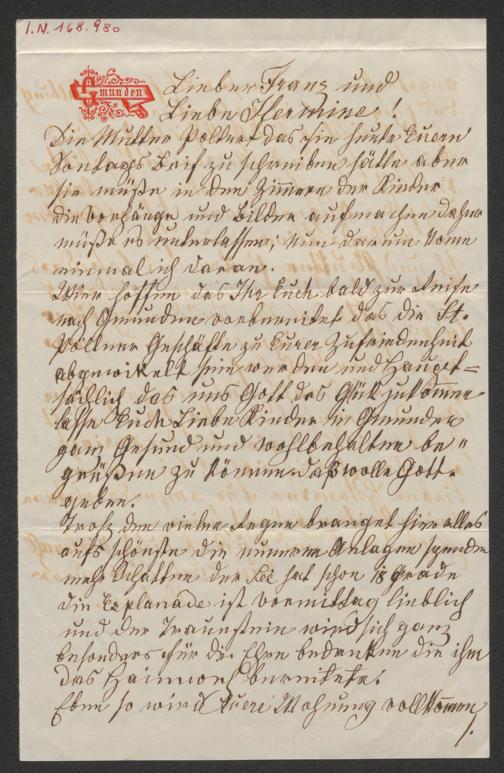 I.N. 168.980
Gmunden
Lieber Franz und
Liebe Hermine!
Die Mutter Poltert das sie heute Euern
Sontags Brif zu schreiben hätte aber
sie müße in den Zimmern der Kinder
die Vorhänge und Bilder aufmachen daher
müße es unterlassen; nun darum kome
einmal ich daran.
Wier hoffen das Ihr Euch bald zur Reise
nach Gmunden vorbereitet das die St.
Pöltner Geschäfte zu Eurer Zufriedenheit
abgewikelt sein werden und Haupt=
sächlich das uns Gott das Glük zukommen
lasse Euch Liebe Kinder in Gmunden
ganz Gesund und wohlbehalten be"
grüßen zu können. daß wolle Gott
geben.
Troz den vielen Regen pranget hier alles
aufs schönste die neuen Anlagen spenden
mehr Schatten der See hat schon 18 Grade
die Esplanade ist vormittag lieblich
und der Traunstein wird sich ganz
besonders für die Ehre bedanken die ihm
das bereitete.
Eben so wird Euere Wohnung vollkommen